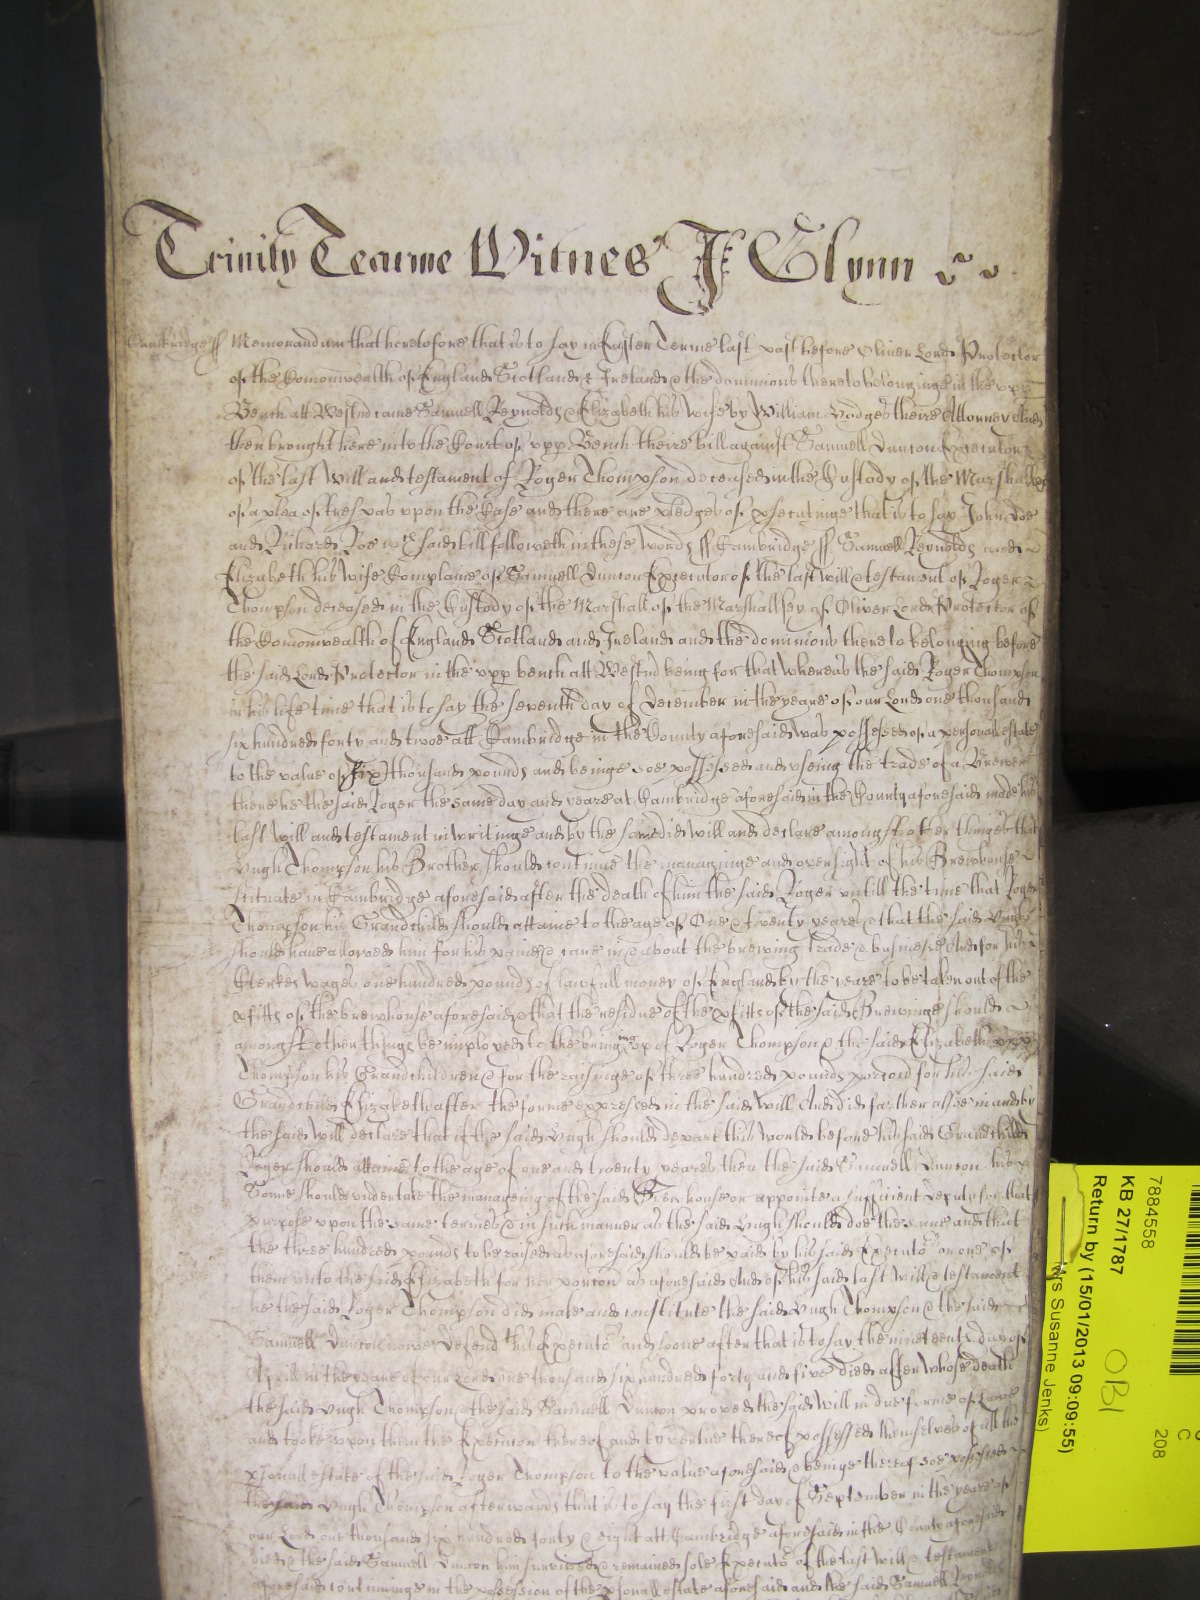 Trinity Tearme Witnes Jo Glynn
Cambridge ss Memorandum that heretofore that is to say in Easter Terme last past before Oliver Lord Protector
of the Comonwealth of England Scotland & Ireland & the dominions thereto belonginge in the upp
Bench att Westmr came Samuell Reynolds & Elizabeth his wife by William Hodges theire Attorney And
then brought here into the Court of upp Bench theire bill against Samuell Duncon Executor
of the last Will and testament of Roger Thompson deceased in the Custody of the Marshall &c
of a plea of trespas upon the Case and there are pledges of psecutinge that is to say John Doe
and Richard Roe wch said bill followeth in these words ss Cambridge ss Samuell Reynolds and
Elizabeth his Wife Complaine of Samuell Duncon Executor of the last will & testament of Roger
Thompson deceased in the Custody of the Marshall of the Marshallsey of Oliver Lord Protector of
the Comonwealth of England Scotland and Ireland and the dominions thereto belonging before
the said Lord Protector in the upp bench att Westmr being for that whereas the said Roger Thompson
in his life time that is to say the seventh day of December in the yeare of our Lord one thousand
six hundred forty and twoe att Cambridge in the County aforesaid was possessed of a personal estate
to the value of six thousand pounds and beinge soe possessed and useing the trade of a Brewer
there he the said Roger the same day and yeare at Cambridge aforesaid in the County aforesaid made his
last will and testament in writinge and by the same did will and declare amongst other things that
Hugh Thompson his Brother should continue the manageinge and oversight of his Brewhouse
scituate in Cambridge aforesaid after the death of him the said Roger untill the time that Roger
Thompson his Grandchild should attaine to the age of One & twenty yeares & that the said Hugh
should have allowed him for his paines & care in & about the brewing trade & business And for his
Clerkes wages one hundred pounds of lawfull money of England by the yeare to be taken out of the
pfitts of the brewhouse aforesaid & that the residue of the pfitts of the said Brewinge should
amongst other things be imployed to the bringing up of Roger Thompson & the said Elizabeth
Thompson his Grandchildren & for the raisinge of three hundred pounds porcon for his said
Grandchild Elizabeth after the forme expressed in the said will And did farther alsoe in and by
the said will declare that if the said Hugh should depart this world before his said Grandchild
Roger should attaine to the age of one and twenty yeares then the said Samuell Duncon his
Sonne should undertake the manageing of the said Brewhouse or appointe a sufficient deputy for that
purpose upon the same termes & in such manner as the said Hugh should doe the same and that
the three hundred pounds to be raised as aforesaid should be paid by his said Executors or one of
them unto the said Elizabeth for her porcon as aforesaid And of his said last will & testament
he the said Roger Thompson did make and constitute the said Hugh Thompson & the said
Samuell Duncon nowe Defend his Executors and soone after that is to say the nineteenth day of
Aprill in the yeare of our Lord one thousand six hundred forty and five died after whose death
the said Hugh Thompson & the said Samuell Duncon proved the said will in due forme of Lawe
and tooke upon them the Execucon thereof and by vertue thereof possessed themselves of all the
psonall estate of the said Roger Thompson to the value aforesaid & beinge thereof soe possessed
the said Hugh Thompson afterwards that is to say the first day of September in the yeare of
our Lord one thousand six hundred forty & eight att Cambridge aforesaid in the County aforesaid
died & the said Samuell Duncon him survived & remained sole Executor of the last will & testament
aforesaid continuinge in the possession of the psonall estate aforesaid and the said Samuell
7884558
KB 27/1787
Return by (15/01/2013 09:09:55)
Mrs Susanne Jenks)
OBI
C
208